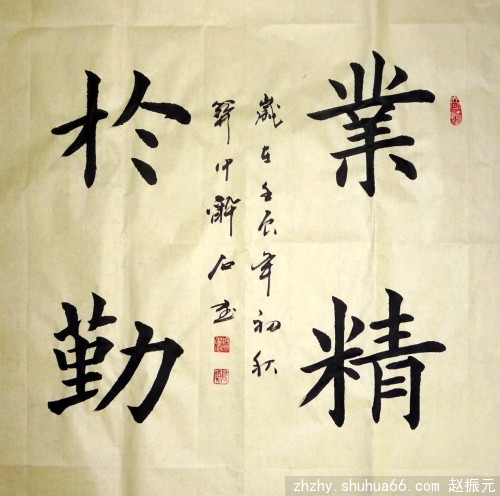 業精
於勤
歲在壬辰年初秋
zhzhy.shuhua66.com 赵振元